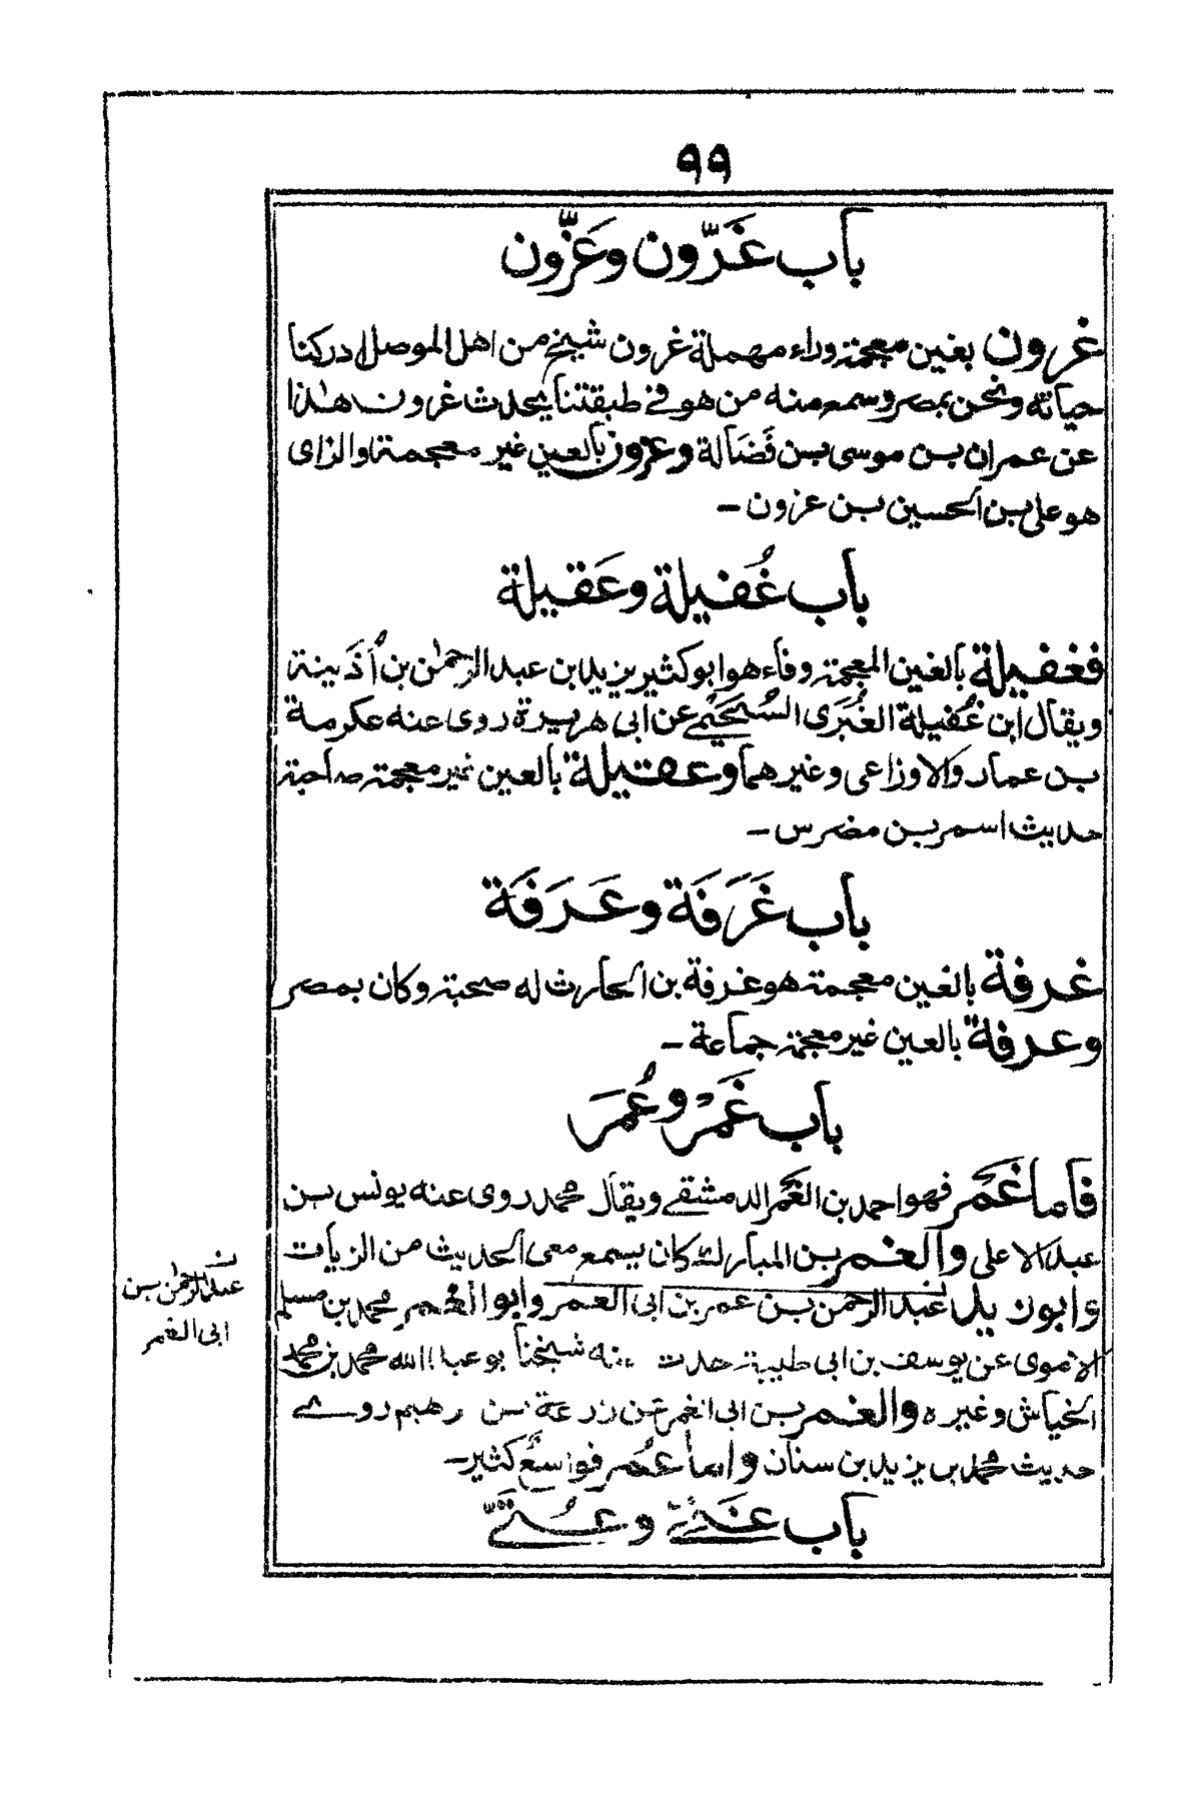 ٩٩
باب غَرّون وعَزّون
غرون بغين معجمة وراء مهملة غرون شيخ من اهل الموصل ادركنا
حياته ونحن بمصر وسمع منه من هو في طبقتنا يحدث غرون هذا
عن عمران بن موسى بن فَضَالة وعزون بالعين غير معجمة والزاى
هو على بن الحسين بن عزون ــ
باب غُفيلة وعَقيلة
فغفيلة بالغين المعجمة وفاء هو ابو كثير يزيد بن عبد الرحمٰن بن اُذَينة
ويقال ابن غُفيلة الغُبَرى السُحَيمى عن ابى هريرة روى عنه عكرمة
بن عمار والاوزاعى وغيرهما وعقيلة بالعين غير معجمة صاحبة
حديث اسمر بن مضرس ــ
باب غَرَفَة وعَرَفَة
غرفة بالغين معجمة هو غرفة بن الحارث له صحبة وكان بمصر
وعرفة بالعين غير معجمة جماعة ــ
باب غَمْر وعُمَر
فاما غَمْر فهو احمد بن الغَمْر الدمشقى ويقال محمد روى عنه يونس بن
عبد الاعلى والغمر بن المبارك كان يسمع معى الحديث من الزيات
وابو زيد عبد الرحمن بن عمر بن ابى الغمر وابو الغمر محمد بن مسلم
الاموى عن يوسف بن ابى طيبة حدث عنه شيخنا ابو عبد الله محمد بن محمد
الخياش وغيره والغمر بن ابى الغمر عن زرعة بن رهيم روى
حديث محمد بن يزيد بن سنان واما عُمر فواسعٌ كثير ــ
باب غَنِىّ وعُتَىّ
عبد الرحمٰن بن
ابى الغمر